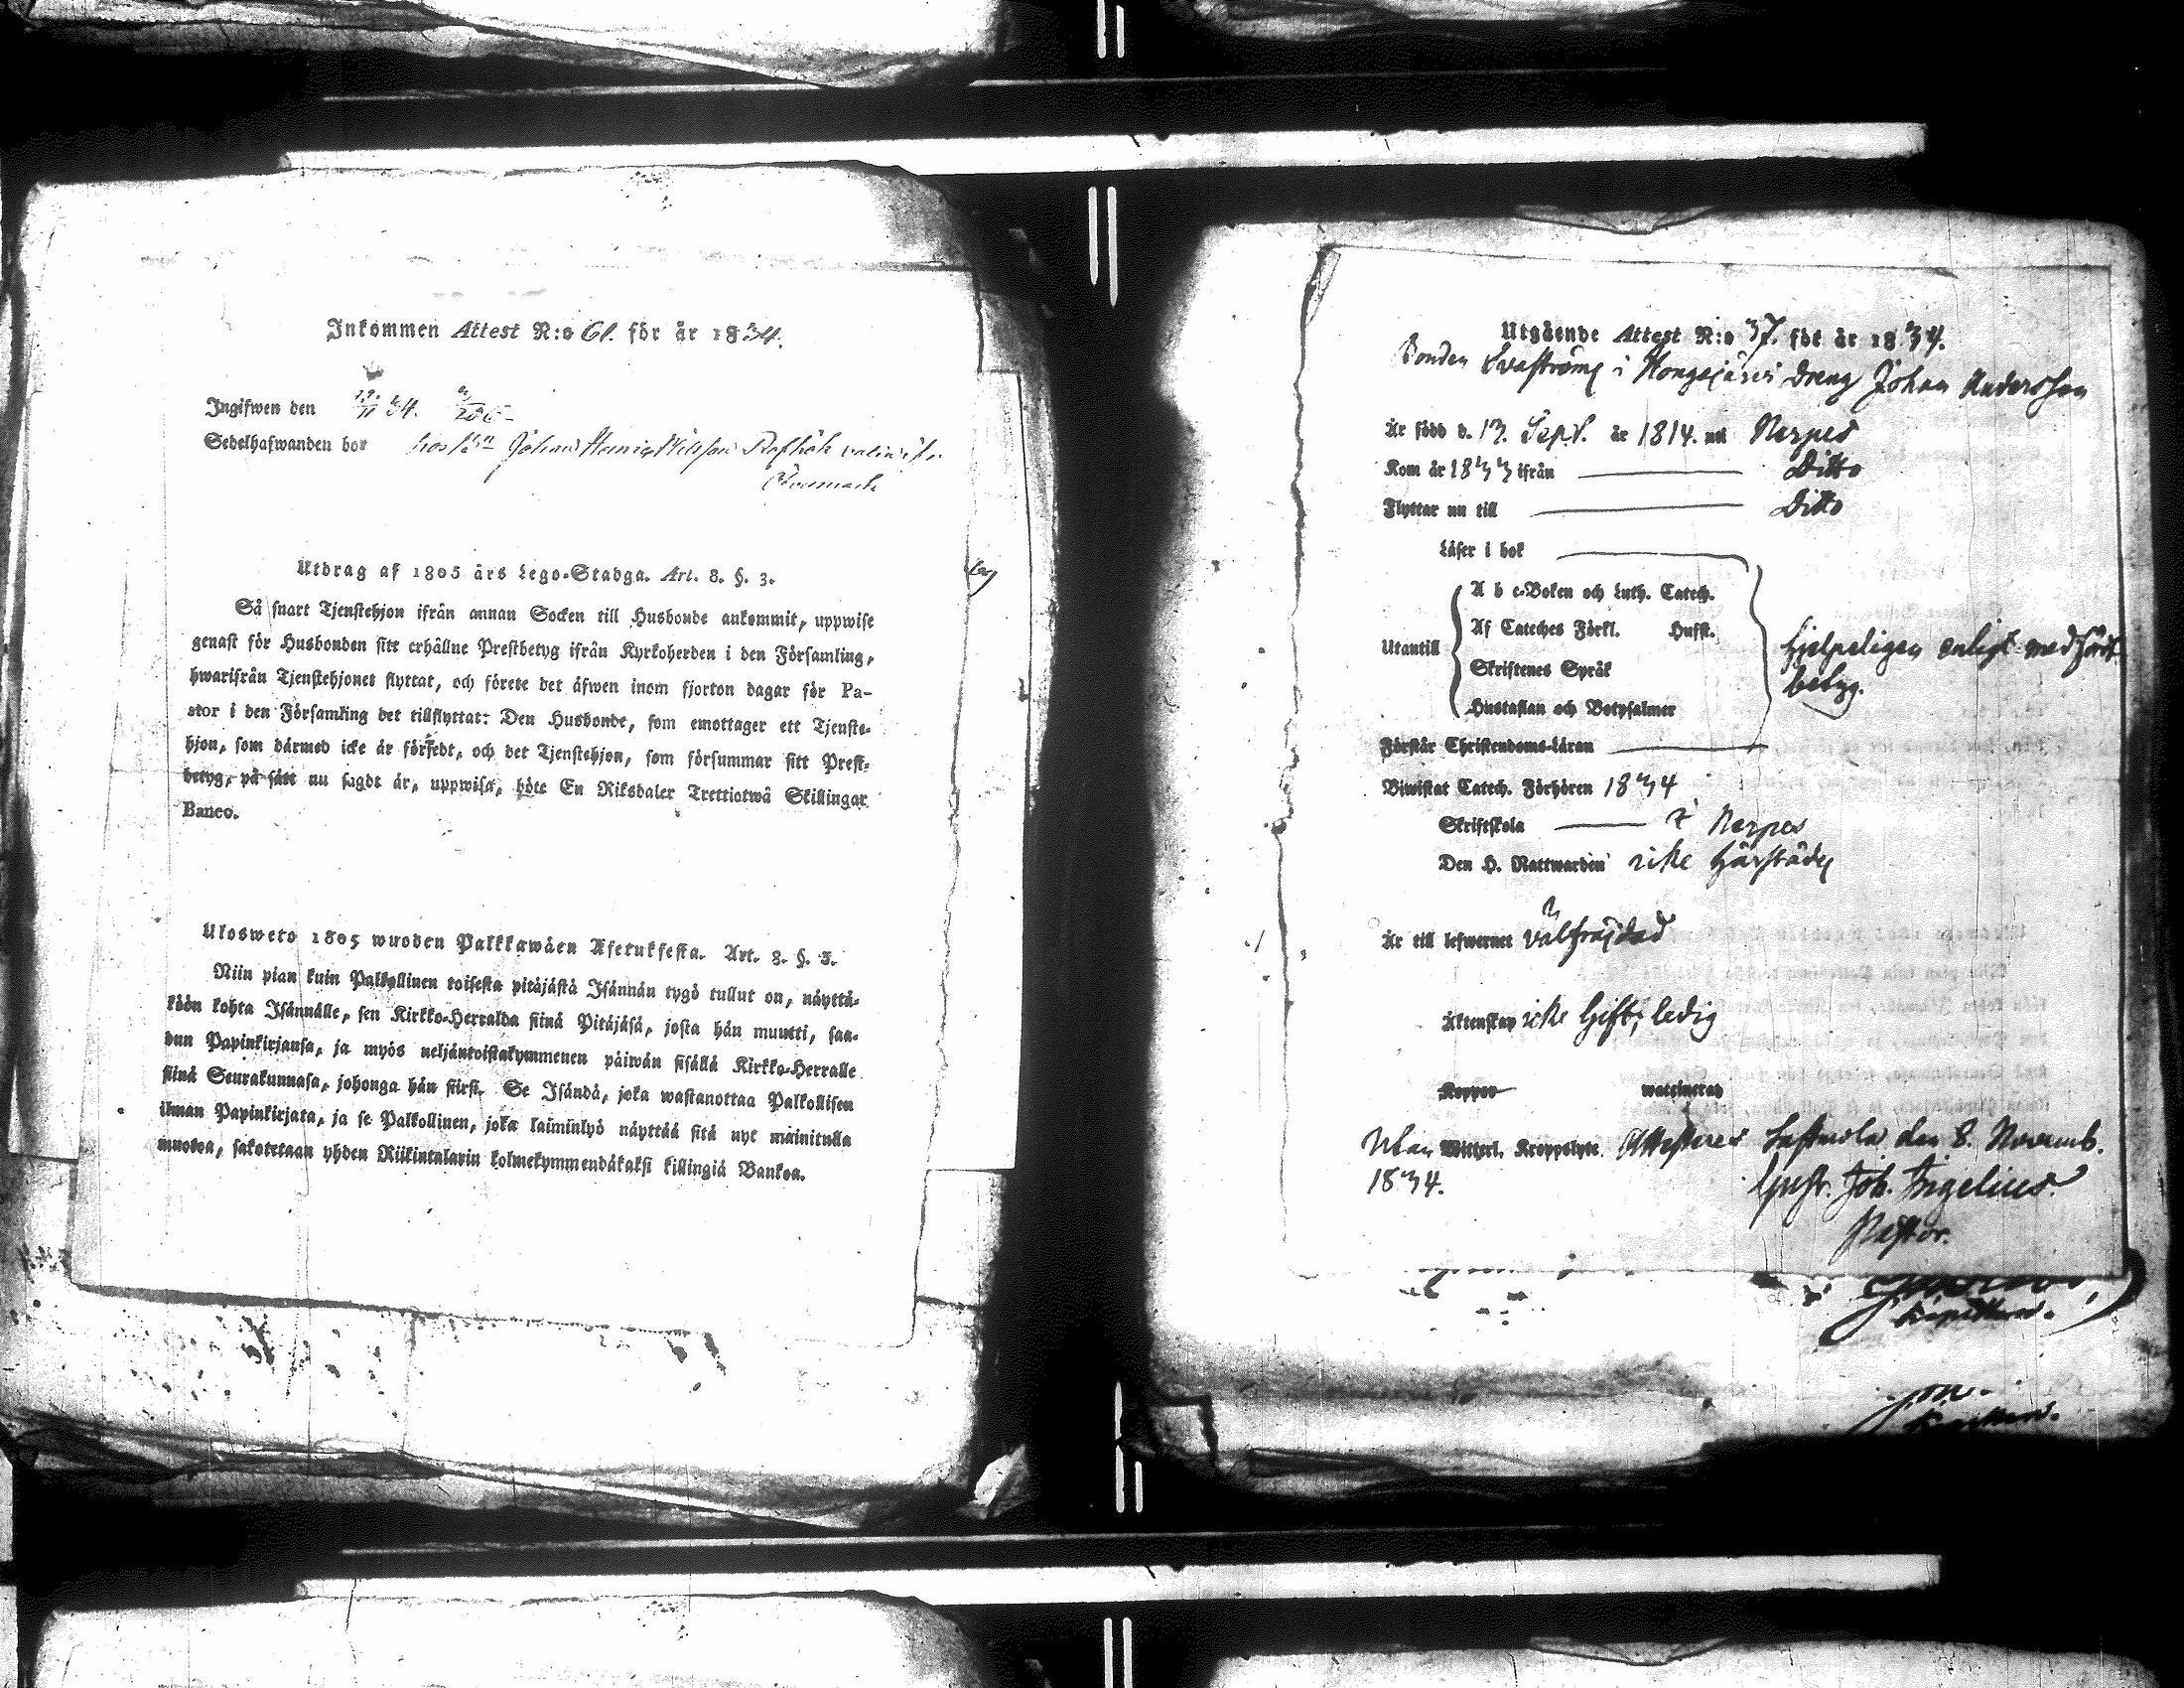 Inkommen Attest N:o 61. för år 1834.
Ingifwen den 19/11 34.
Sedelhafwanden bor hos Johan Henric
Utdrag af 1805 års Lego-Stadga. Art. 8. §. 3.
Så snart Tjenstehjon ifrån annan Socken till Husbonde ankommit, uppwise
genast för Husbonden sitt erhållne Prestbetyg ifrån Kyrkoherden i den Församling,
hwarifrån Tjenstehjonet flyttat, och förete det äfwen inom fjorton dagar för Pa-
stor i den Församling det tillflyttat: Den Husbonde, som emottager ett Tjenste-
hjon, som därmed icke är försedt, och det Tjenstehjon, som försummar sitt Prest-
betyg, på sätt nu sagdt är, uppwisa, böte En Riksdaler Trettiotwå Skillingar
Banco.
Ulosweto 1805 wuoden Palkkawäen Asetuksesta. Art. 8. §. 3.
Niin pian kuin Palkollinen toisesta pitäjästä Isännän tygö tullut on, näyttä-
köön kohta Isännälle, sen Kirkko-Herralda siinä Pitäjäsä, josta hän muutti, saa-
dun Papinkirjansa, ja myös neljäntoistakymmenen päiwän sisällä Kirkko-Herralle
siinä Seurakunnasa, johonga hän siirsi. Se Isändä, joka wastanottaa Palkollisen
ilman Papinkirjata, ja se Palkollinen, joka laiminlyö näyttää sitä nyt mainitulla
muotoa, sakotetaan yhden Riikintalarin kolmekymmendäkaksi killingiä Bankoa.
Utgående Attest N:o 37. föt år 1834.
Bonden i Dreng Johan Andersson
Är född d. 13. Sept. år 1814. uti Nerpes
Kom år 1833 ifrån Ditto
Flyttar nu till Ditto
Läser i bok
A b c-Boken och Luth. Catech.
Af Cateches Förkl. Hufst.
Utantill
Skriftenes Språk
hjelpeligen enligt medfördt
betyg.
Hustaflan och Botpsalmer
Förstår Christendoms-Läran
Biwistat Catech. Förhören 1834
Skriftskola i Nerpes
Den H. Nattwarden icke härstädes
Är till lefwernet välfräjdad
Äktenskap icke Gift, ledig
Koppor waccinerad
Utan Witterl. Kroppslyte. Attesteres den 8. Novemb.
1834.
Gust. Joh. Bigelius.
Pastor.